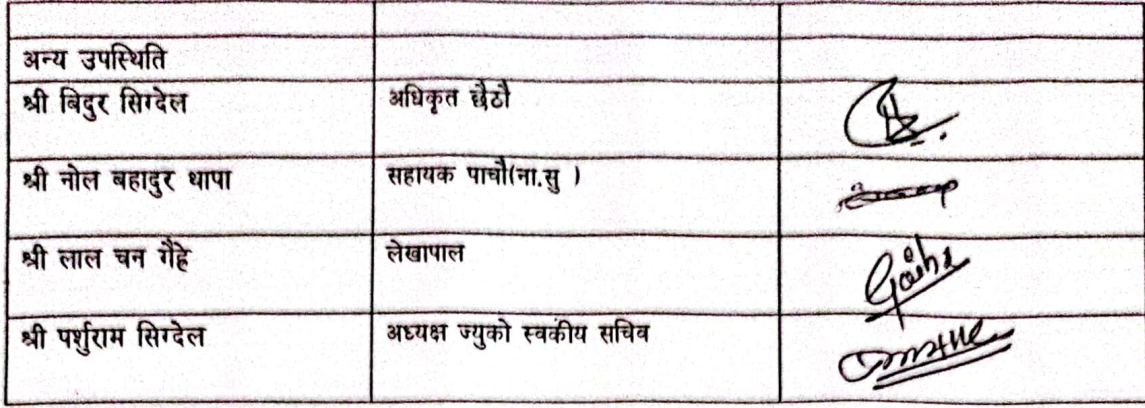 अन्य उपस्थिति
श्री बिदुर सिग्देल अधिकृत छैठौ
श्री नोल बहादुर थापा सहायक पाचौ(ना.सु )
श्री लाल चन गैह्रे लेखापाल
श्री पर्शुराम सिग्देल अध्यक्ष ज्युको स्वकीय सचिव